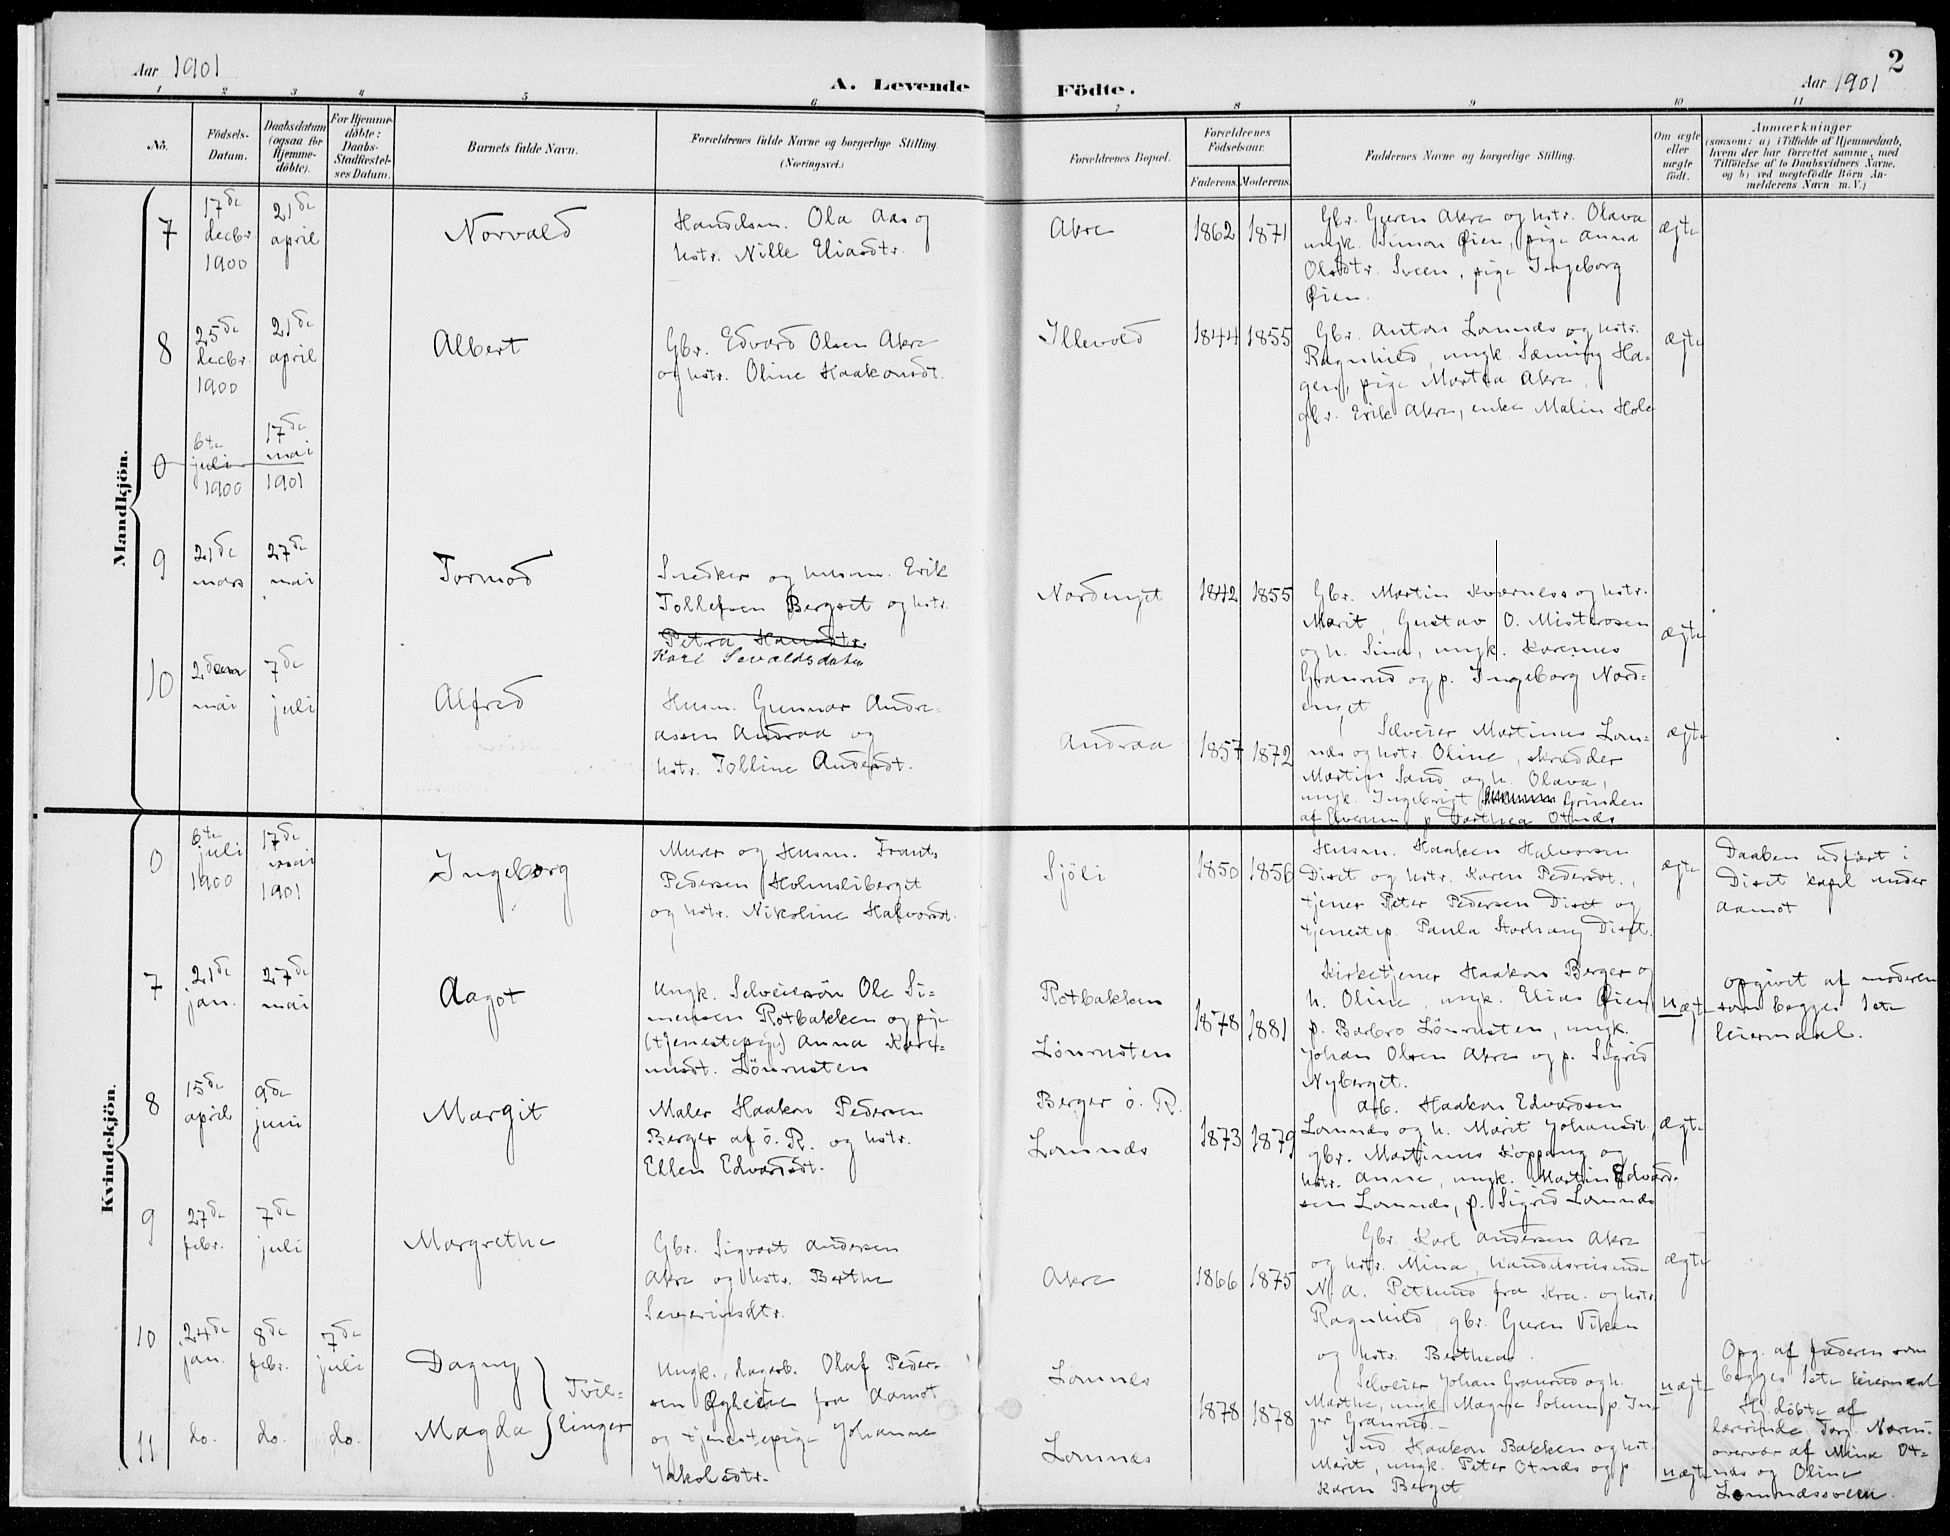 Aar 1901
A. Levende
Födte.
2
Aar 1901
1 2 3 4 5 6 7 8 9 10 11
No.
Födsels-
Datum.
Daabsdatum
(ogsaa for
Hjemme-
döbte).
For Hjemme-
döbte:
Daabs-
Stadfæstel-
ses Datum.
Barnets fulde Navn.
Forældrenes fulde Navne og borgerlige Stilling.
(Næringsvei.)
Forældrenes Bopæl.
Forældrenes
Födselsaar.
Faderens. Moderens.
Faddernes Navne og borgerlige Stilling.
Om ægte
eller
uægte
födt.
Anmærkninger
(saasom: a) i Tilfælde af Hjemmedaab,
hvem der har forrettet samme, med
Tilföielse af to Daabsvidners Navne,
og b) ved uægtefödte Börn An-
melderens Navn m. V.)
Mandkjön.
7
17de
decbr
1900
21de
april
Norvald
Handelsm. Ola Aas og
hstr. Nille Eliasdtr.
Akre
1862 1871
Gbr. Guren Akre og hstr. Olava
ungk. Simon Øien, pige Anna
Olsdtr. Sveen, pige Ingeborg
Øien.
ægte
8
25de
decbr.
1900
21de
april
Albert
Gbr. Edvard Olsen Akre
og hstr. Oline Haakonsdt.
Illevold
1844 1855
Gbr. Anton Lomnes og hstr.
Ragnhild, ungk. Sæming Ha-
gen, pige Martha Akre,
gbr. Erik Akre, enke Malin Hole
ægte
0
6te
juli
1900
17de
mai
1901
9
21de
mars
27de
mai
Tormod
Snedker og husm. Erik
Tollefsen Bergset og hstr.
Petra Hansdtr.
Kari Sevaldsdatter
Nordenget
1842 1855
Gbr. Martin Kværnes og hstr.
Marit, Gustav O. Misterosen
og h. Sina, ungk. Karenus
Granrud og p. Ingeborg Nord-
enget
ægte
10
2den
mai
7de
juli
Alfred
Husm. Gunnar Andre-
assen Andraa og
hstr. Tolline Andersdt.
Andraa
1857 1872
Selveier Martinus Lom-
nes og hstr. Oline, skrædder
Martin Sand og h. Olava,
ungk. Ingebrigt Grinden
af Elverum, p. Dorthea Otnes
ægte
Kvindekjön.
0
6te
juli
1900
17de
mai
1901
Ingeborg
Murer og Husm. Frants
Pedersen Holmsliberget
og hstr. Nikoline Halvorsdt.
Sjöli
1850 1856
Husm. Haaken Halvorsen
Diset og hstr. Karen Pedersdt.,
tjener Peter Pedersen Diset og
tjenestep. Paula Storhaug Diset.
ægte
Daaben udført i
Diset kapel under
Aamot
7
21de
jan.
27de
mai
Aagot
Ungk. Selveiersön Ole Si-
mensen Rotbakken og pige
(tjenestepige) Anna Kare-
nusdt. Lönrusten
Rotbakken
Lönrusten
1878 1881
Kirketjener Haakon Berger og
h. Oline, ungk. Elias Øien,
p. Barbro Lönrusten, ungk.
Johan Olsen Akre og p. Sigrid
Nyberget.
uægte
opgivet af moderen
som begges 1ste
leiermaal.
8
15de
april
9de
juni
Margit
Maler Haakon Pedersen
Berger af ö. R. og hstr.
Ellen Edvardsdt.
Berger ö. R.
Lomnes
1873 1879
arb. Haakon Edvardsen
Lomnes og h. Marit Johansdt.,
gbr. Martinus Koppang og
hstr. Anne, ungk. Martin Edvard-
sen Lomnes, p. Sigrid Lomnes
ægte
9
27de
febr.
7de
juli
Margrethe
Gbr. Sigvart Andersen
Akre og hstr. Berthe
Severinsdtr.
Akre
1866 1875
Gbr. Karl Andersen Akre
og hstr. Mina, handelsreisende
N. A. Petlund fra Kra. og hstr.
Ragnhild, gbr. Guren Viken
og hstr. Berthea.
ægte
10
24de
jan.
8de
febr.
7de
juli
Dagny
Tvil-
linger
Ungk., dagarb. Olaf Peder-
sen Ögleie fra Aamot
og tjenestepige Johanne
Jakobsdtr.
Lomnes
1878 1878
Selveier Johan Granrud og h.
Marthe, ungk. Magne Solum, p. In-
ger Granrud.
uægte
Opg. af faderen som
begges 1ste leiermaal
Hj. döbte af
lærerinde Torg. Noren.
overvær af Mina Ot-
nes og Oline
Lomnessveen.
11
do. do. do.
Magda
Lomnes
Ind. Haakon Bakken og hst.
Marit, ungk. Peter Otnes og p.
Karen Berget
uægte